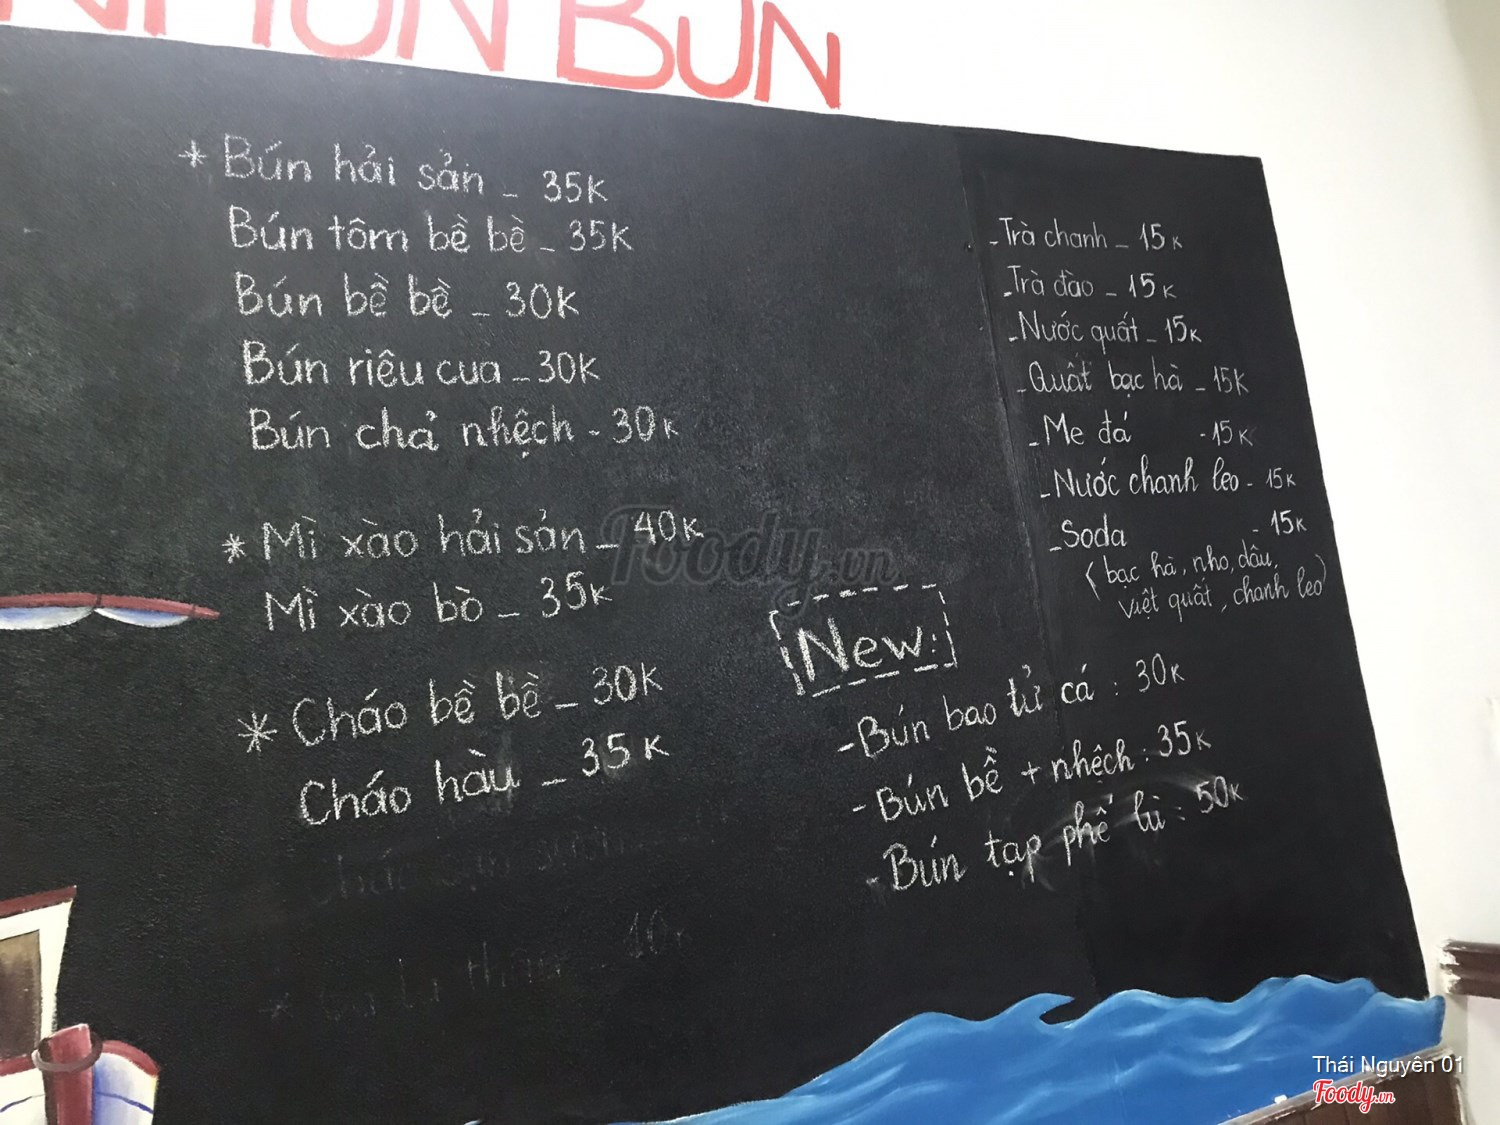 BÚN
* Bún hải sản - 35K
Bún tôm bề bề - 35K
Bún bề bề - 30K
Bún riêu cua - 30K
Bún chả nhệch - 30K
* Mì xào hải sản - 40K
Mì xào bò - 35K
* Cháo bề bề - 30K
Cháo hàu - 35K
10K
- Trà chanh - 15K
- Trà đào - 15K
- Nước quất - 15K
- Quất bạc hà - 15K
- Me đá - 15K
- Nước chanh leo - 15K
- Soda - 15K
(bạc hà, nho, dâu,
việt quất, chanh leo)
New:
- Bún bao tử cá : 30K
- Bún bề + nhệch : 35K
- Bún tạp phế lù : 50K
Foody.vn
Thái Nguyên 01
Foody.vn